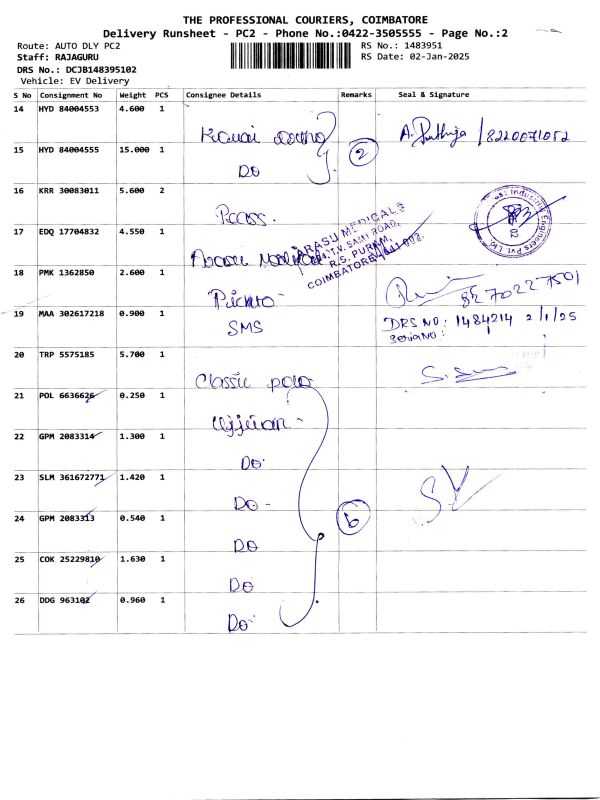 THE PROFESSIONAL COURIERS, COIMBATORE
Delivery Runsheet - PC2 - Phone No.:0422-3505555 - Page No.:2
Route: AUTO DLY PC2 RS No.: 1483951
Staff: RAJAGURU RS Date: 02-Jan-2025
DRS No.: DCJB148395102
Vehicle: EV Delivery
S No Consignment No Weight PCS Consignee Details Remarks Seal & Signature
14 HYD 84004553 4.600 1 8220071052
15 HYD 84004555 15.000 1 Do 2
16 KRR 30083011 5.600 2
17 EDQ 17704832 4.550 1
ARASU MEDICALS
T.V. SAMY ROAD,
R.S. PURAM,
COIMBATORE
18 PMK 1362850 2.600 1
19 MAA 302617218 0.900 1 SMS DRS NO: 1484214 2/1/25
Serial NO:
20 TRP 5575185 5.700 1 Classic polo
21 POL 6636626 0.250 1 Ujjivan
22 GPM 2083314 1.300 1 Do
23 SLM 361672771 1.420 1 Do -
24 GPM 2083313 0.540 1 Do 6
25 COK 25229810 1.630 1 Do
26 DDG 963102 0.960 1 Do